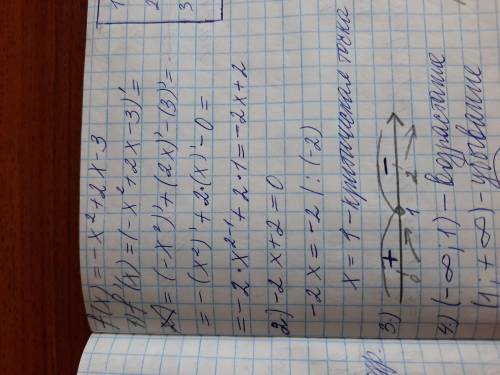 f(x) = -x²+2x-3
1) f'(x) = (-x²+2x-3)' =
= (-x²)' + (2x)' - (3)' =
= -(x²)' + 2·(x)' - 0 =
= -2·x²⁻¹ + 2·1 = -2x+2
2) -2x+2=0
-2x = -2 | :(-2)
x = 1 - критическая точка
3) + -
0 1 2
4) (-∞; 1) - возрастание
(1; +∞) - убывание
1
2
3